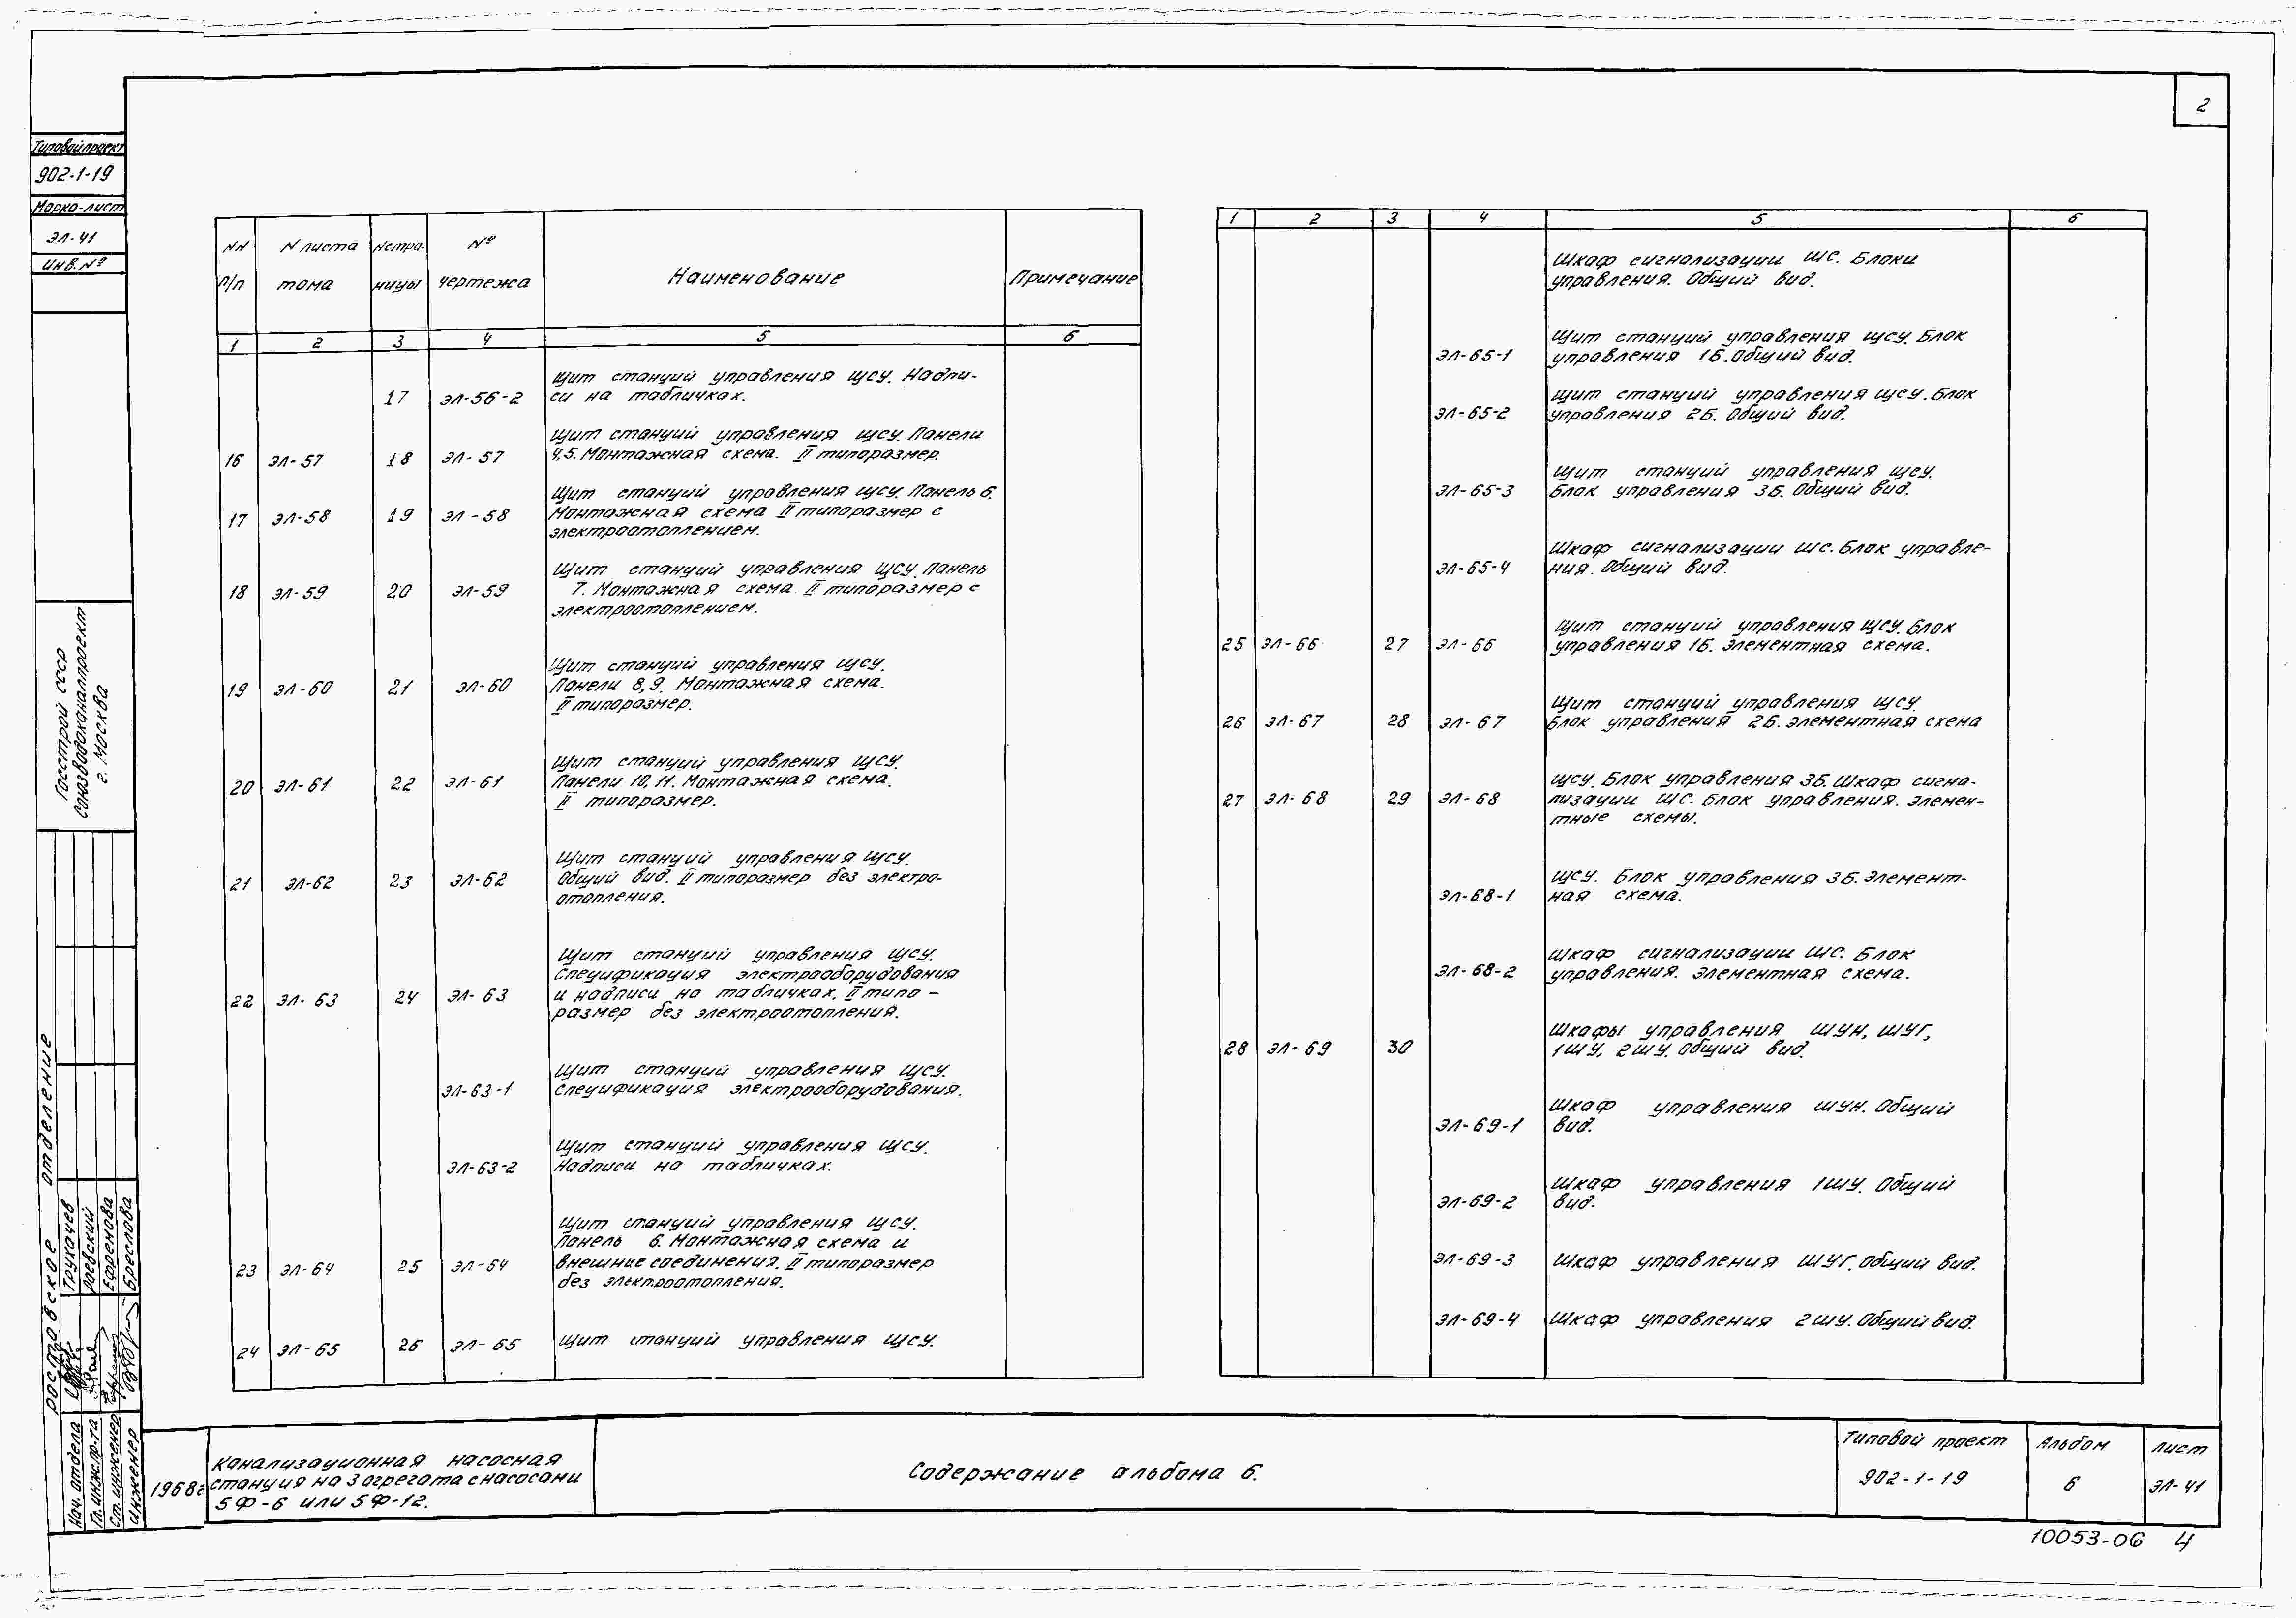 2
Типовой проект
902-1-19
Марка-лист
ЭЛ-41
Инв. №
Госстрой СССР
Союзводоканалпроект
г. Москва
Ростовское отделение
Нач. отдела Трукачев
Гл. инж. пр-та Раевский
Ст. инженер Ефременова
Инженер Бреслова
NN п/п
N листа тома
N страницы
№ чертежа
Наименование
Примечание
1 2 3 4 5 6
Щит станций управления ЩСУ. Надпи-
17 ЭЛ-56-2 си на табличках.
Щит станций управления ЩСУ. Панели
16 ЭЛ-57 18 ЭЛ-57 4,5. Монтажная схема. II типоразмер.
Щит станций управления ЩСУ. Панель 6.
17 ЭЛ-58 19 ЭЛ-58 Монтажная схема II типоразмер с
электроотоплением.
Щит станций управления ЩСУ. Панель
18 ЭЛ-59 20 ЭЛ-59 7. Монтажная схема. II типоразмер с
электроотоплением.
Щит станций управления ЩСУ.
19 ЭЛ-60 21 ЭЛ-60 Панели 8,9. Монтажная схема.
II типоразмер.
Щит станций управления ЩСУ.
20 ЭЛ-61 22 ЭЛ-61 Панели 10, 11. Монтажная схема.
II типоразмер.
Щит станций управления ЩСУ.
21 ЭЛ-62 23 ЭЛ-62 Общий вид. II типоразмер без электро-
отопления.
Щит станций управления ЩСУ.
Спецификация электрооборудования
22 ЭЛ-63 24 ЭЛ-63 и надписи на табличках. II типо-
размер без электроотопления.
Щит станций управления ЩСУ.
ЭЛ-63-1 Спецификация электрооборудования.
Щит станций управления ЩСУ.
ЭЛ-63-2 Надписи на табличках.
Щит станций управления ЩСУ.
Панель 6. Монтажная схема и
23 ЭЛ-64 25 ЭЛ-64 внешние соединения. II типоразмер
без электроотопления.
24 ЭЛ-65 26 ЭЛ-65 Щит станций управления ЩСУ.
1 2 3 4 5 6
Шкаф сигнализации ШС. Блоки
управления. Общий вид.
Щит станций управления ЩСУ. Блок
ЭЛ-65-1 управления 1Б. Общий вид.
Щит станций управления ЩСУ. Блок
ЭЛ-65-2 управления 2Б. Общий вид.
Щит станций управления ЩСУ.
ЭЛ-65-3 Блок управления 3Б. Общий вид.
Шкаф сигнализации ШС. Блок управле-
ЭЛ-65-4 ния. Общий вид.
Щит станций управления ЩСУ. Блок
25 ЭЛ-66 27 ЭЛ-66 управления 1Б. Элементная схема.
Щит станций управления ЩСУ.
26 ЭЛ-67 28 ЭЛ-67 Блок управления 2Б. Элементная схема
ЩСУ. Блок управления 3Б. Шкаф сигна-
27 ЭЛ-68 29 ЭЛ-68 лизации ШС. Блок управления. Элемен-
тные схемы.
ЩСУ. Блок управления 3Б. Элемент-
ЭЛ-68-1 ная схема.
Шкаф сигнализации ШС. Блок
ЭЛ-68-2 управления. Элементная схема.
Шкафы управления ШУН, ШУГ,
28 ЭЛ-69 30 1ШУ, 2ШУ. Общий вид.
Шкаф управления ШУН. Общий
ЭЛ-69-1 вид.
Шкаф управления 1ШУ. Общий
ЭЛ-69-2 вид.
ЭЛ-69-3 Шкаф управления ШУГ. Общий вид.
ЭЛ-69-4 Шкаф управления 2ШУ. Общий вид.
1968г
Канализационная насосная
станция на 3 агрегата с насосами
5Ф-6 или 5Ф-12.
Содержание альбома 6.
Типовой проект
902-1-19
Альбом
6
Лист
ЭЛ-41
10053-06 4